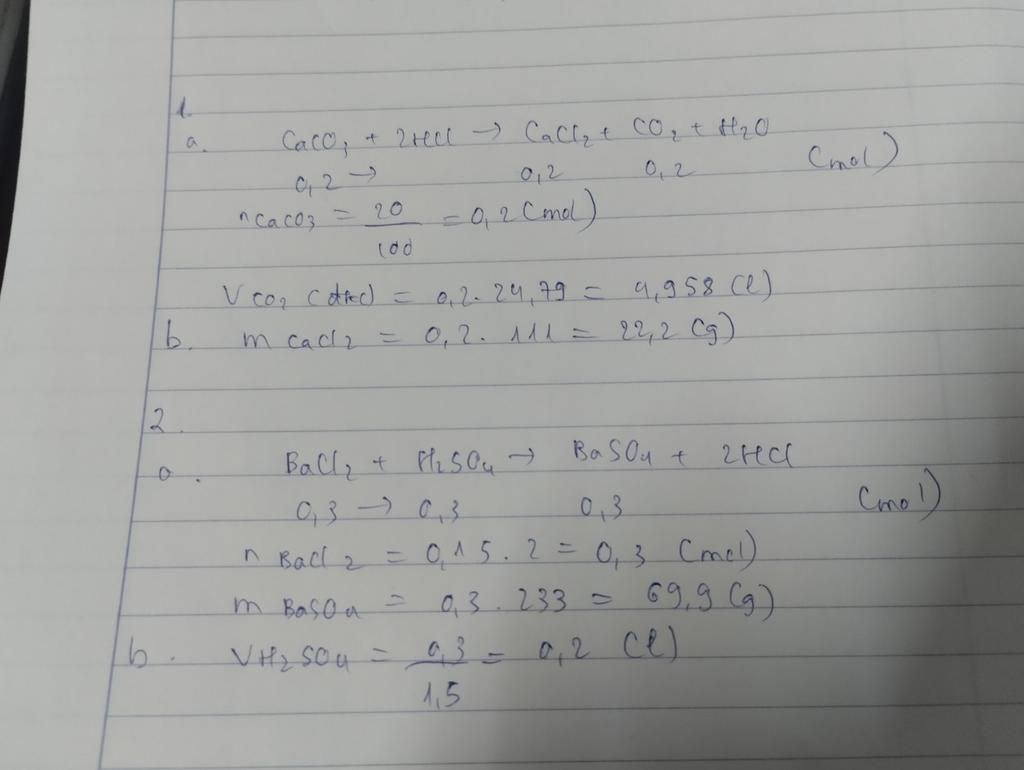 1.
a. CaCO3 + 2HCl → CaCl2 + CO2 + H2O
0,2 → 0,2 0,2 (mol)
nCaCO3 = 20/100 = 0,2 (mol)
V CO2 (đktc) = 0,2 . 24,79 = 4,958 (l)
b. m CaCl2 = 0,2 . 111 = 22,2 (g)
2.
a. BaCl2 + H2SO4 → BaSO4 + 2HCl
0,3 → 0,3 0,3 (mol)
n BaCl2 = 0,15 . 2 = 0,3 (mol)
m BaSO4 = 0,3 . 233 = 69,9 (g)
b. VH2SO4 = 0,3/1,5 = 0,2 (l)